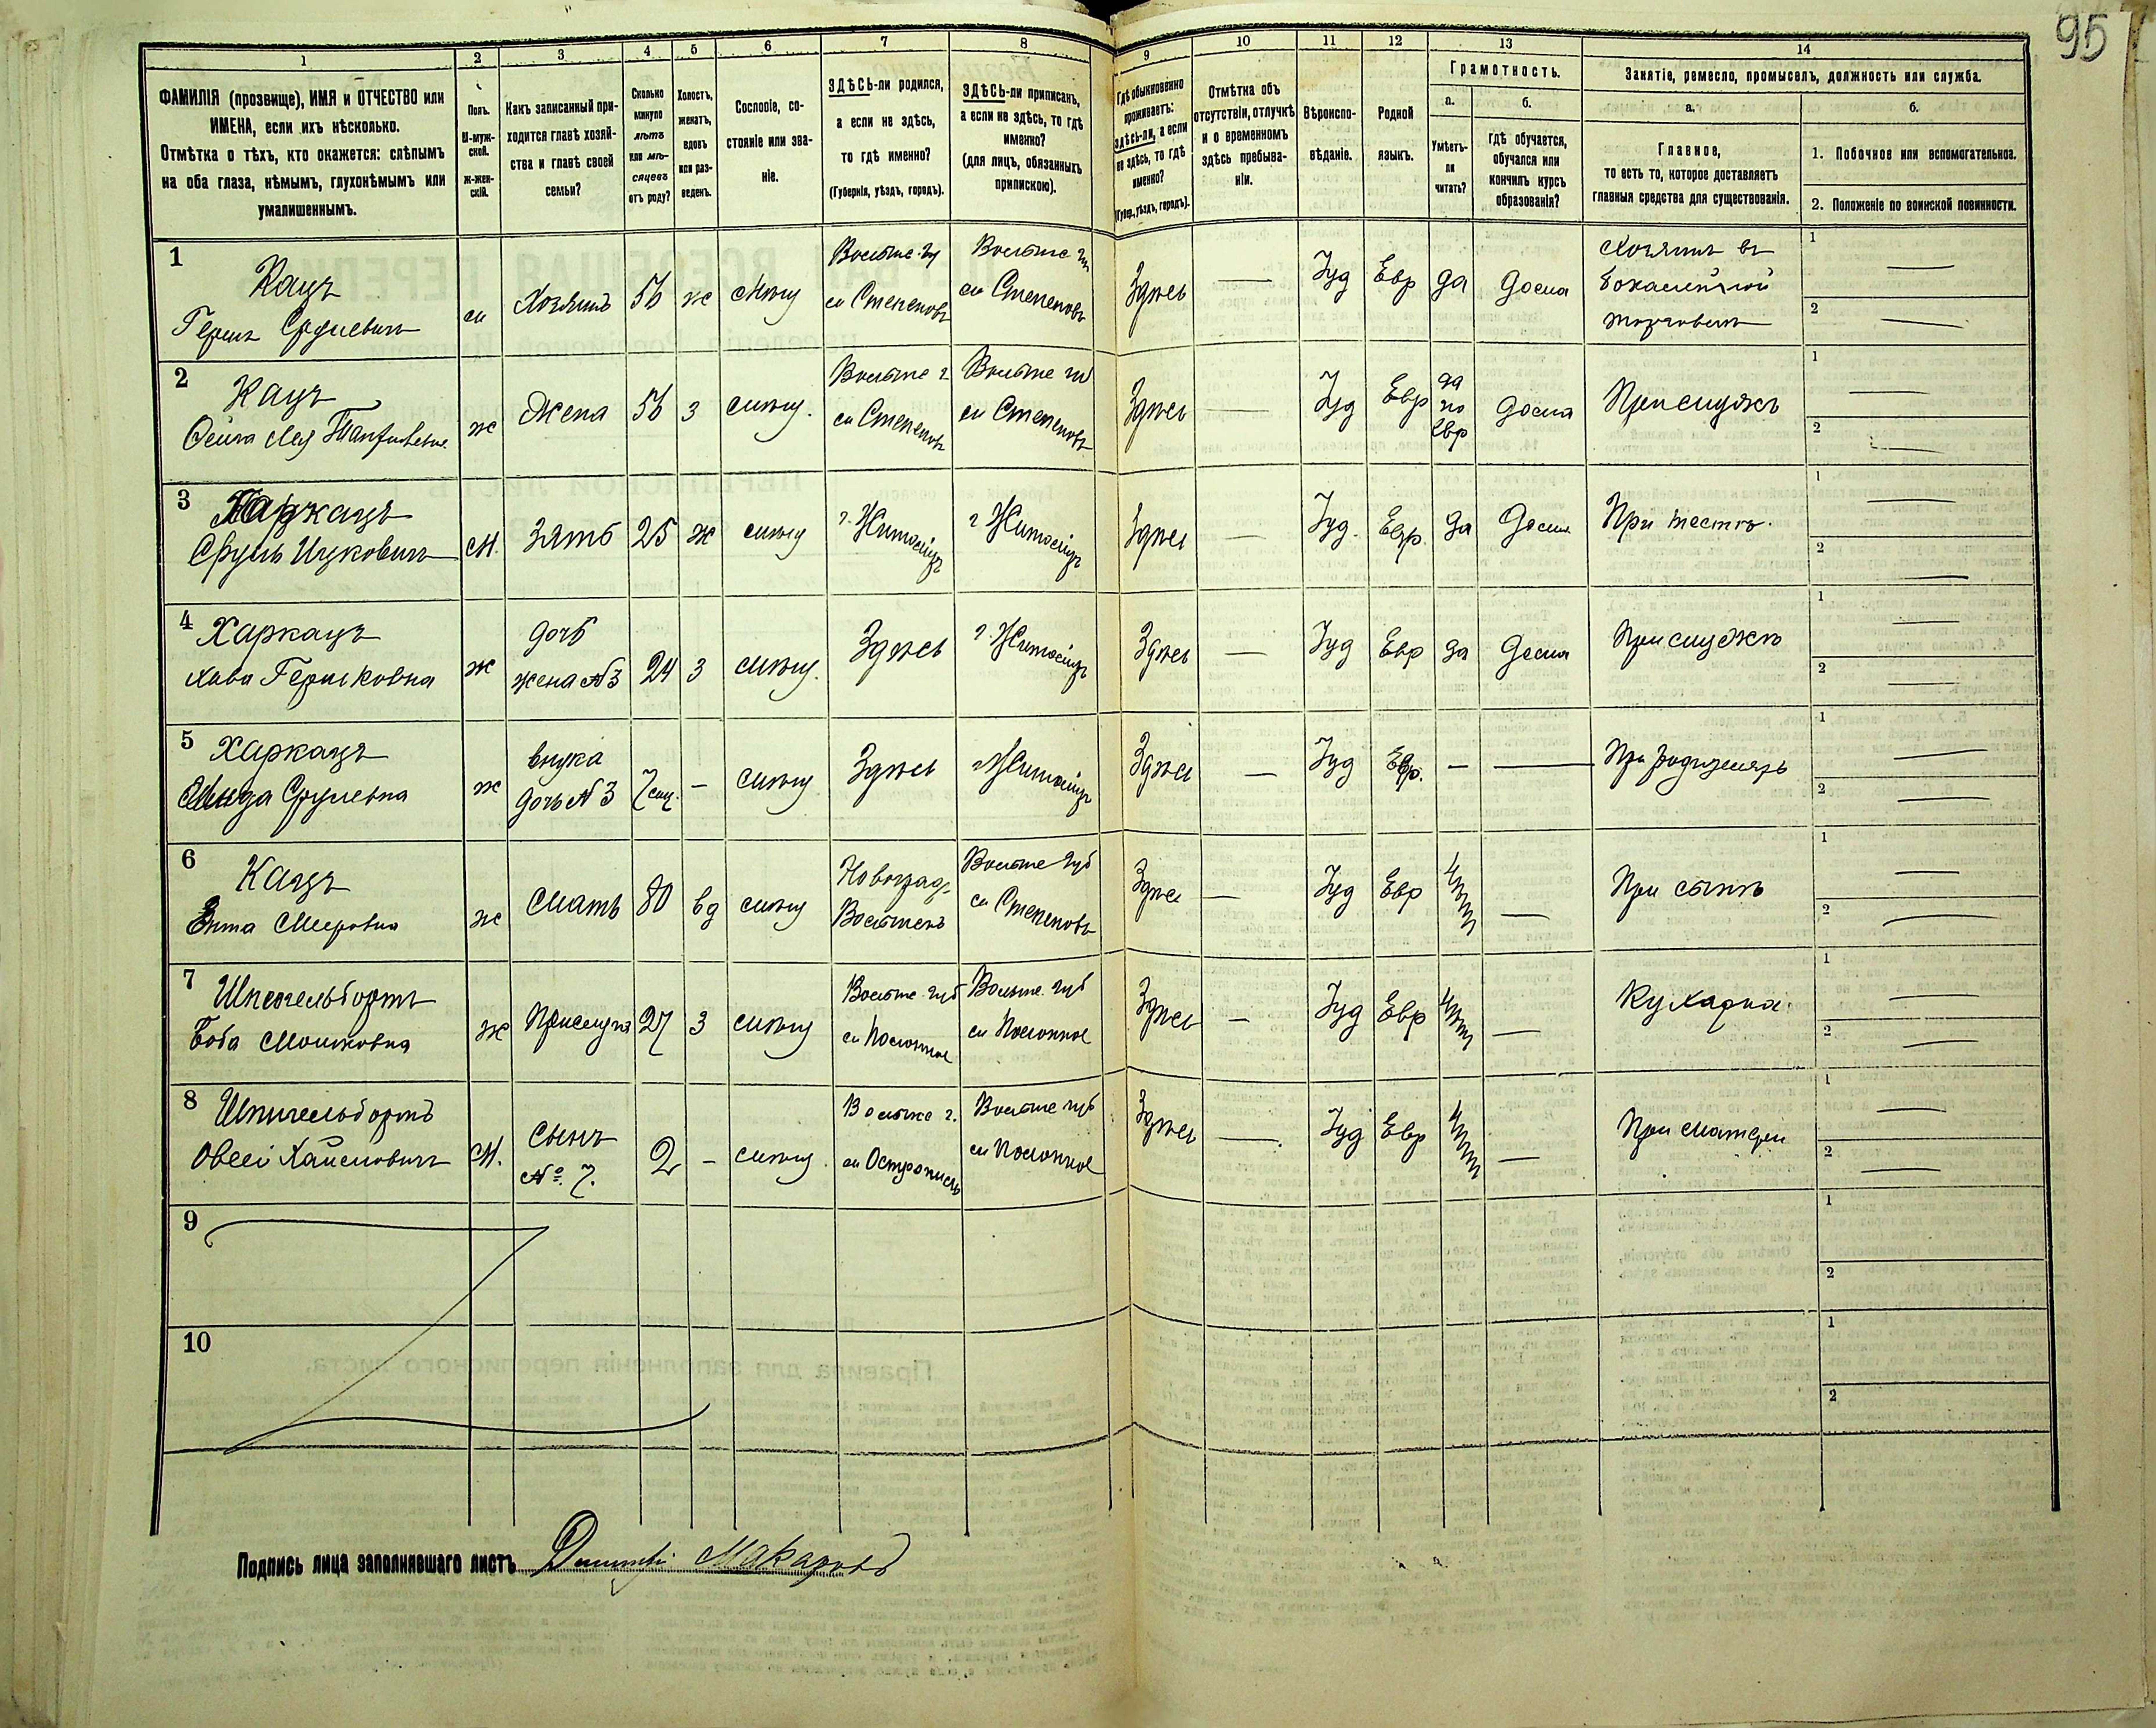 95
1
2
3
4
5
6
7
8
9
10
11
12
13
14
ФАМИЛІЯ (прозвище), ИМЯ и ОТЧЕСТВО или
ИМЕНА, если ихъ нѣсколько.
Отмѣтка о тѣхъ, кто окажется: слѣпымъ
на оба глаза, нѣмымъ, глухонѣмымъ или
умалишеннымъ.
Полъ.
М-муж-
ской.
Ж-жен-
скій.
Какъ записанный при-
ходится главѣ хозяй-
ства и главѣ своей
семьи?
Сколько
минуло
лѣтъ
или мѣ-
сяцевъ
отъ роду?
Холостъ,
женатъ,
вдовъ
или раз-
веденъ.
Сословіе, со-
стояніе или зва-
ніе.
ЗДѢСЬ-ли родился,
а если не здѣсь,
то гдѣ именно?
(Губернія, уѣздъ, городъ).
ЗДѢСЬ-ли приписанъ,
а если не здѣсь, то гдѣ
именно?
(для лицъ, обязанныхъ
припискою).
Гдѣ обыкновенно
проживаетъ:
здѣсь-ли, а если
не здѣсь, то гдѣ
именно?
(Губер., уѣздъ, городъ).
Отмѣтка объ
отсутствіи, отлучкѣ
и о временномъ
здѣсь пребыва-
ніи.
Вѣроиспо-
вѣданіе.
Родной
языкъ.
Грамотность.
а.
Умѣетъ-
ли
читать?
б.
гдѣ обучается,
обучался или
кончилъ курсъ
образованія?
Занятіе, ремесло, промыселъ, должность или служба.
а.
Главное,
то есть то, которое доставляетъ
главныя средства для существованія.
б.
1. Побочное или вспомогательное.
2. Положеніе по воинской повинности.
1
Кацъ
Герш Срулевичъ
м
Хозяинъ
56
ж
мѣщ
Волынс. гу
м Степень
Волынс гу
м Степень
Здѣсь
Іуд
Евр
да
дома
Хозяинъ въ
бокалейной
торговли
1
2
2
Кацъ
ж
Жена
56
з
мѣщ.
Волынс г
м Степень
Волынс гу
м Степень
Здѣсь
Іуд
Евр
да
по
Евр
дома
При мужѣ
1
2
3
Харкацъ
Сруль Ицковичъ
М.
Зять
25
ж
мѣщ
г. Житоміръ
г Житоміръ
Здѣсь
Іуд.
Евр.
да
дома
При тестѣ.
1
2
4
Харкацъ
Хава Гершковна
ж
дочь
жена №3
24
з
мѣщ.
Здѣсь
г. Житоміръ
Здѣсь
Іуд
Евр
да
дома
При мужѣ
1
2
5
Харкацъ
Срулевна
ж
внука
дочь №3
7 мѣс.
-
мѣщ
Здѣсь
Житоміръ
Здѣсь
Іуд
Евр.
-
При родителяхъ
1
2
6
Кацъ
Ента Меировна
ж
Мать
80
вд
мѣщ
Новоград-
Волынскъ
Волынс губ
м Степень
Здѣсь
Іуд
Евр
нѣтъ
При сынѣ
1
2
7
Шпигельбортъ
Боба Мошковна
ж
Прислуга
27
з
мѣщ
Волынс. губ
м Полонное
Волынс. губ
м Полонное
Здѣсь
Іуд
Евр
нѣтъ
Кухарка.
1
2
8
Шпигельбортъ
Овсей Хаимовичъ
М.
Сынъ
№ 7.
2
-
мѣщ.
Волынс г.
м Острополь
Волынс губ
м Полонное
Здѣсь
Іуд
Евр
нѣтъ
При матери
1
2
9
1
2
10
1
2
Подпись лица заполнявшаго листъ Дмитрій Макаровъ